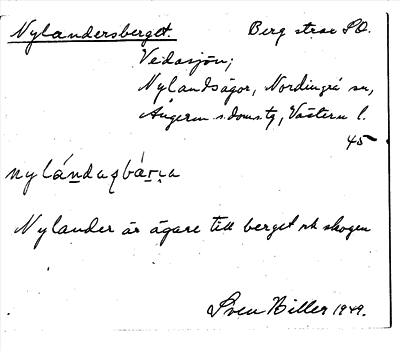 Nylandersberget. Berg strax SO.
Vedasjön;
Nylandsägor, Nordingrå sn,
Ångerm. s. domstg, Västern. l.
45
Nylander är ägare till berget o. skogen
Sven Hiller 1949.